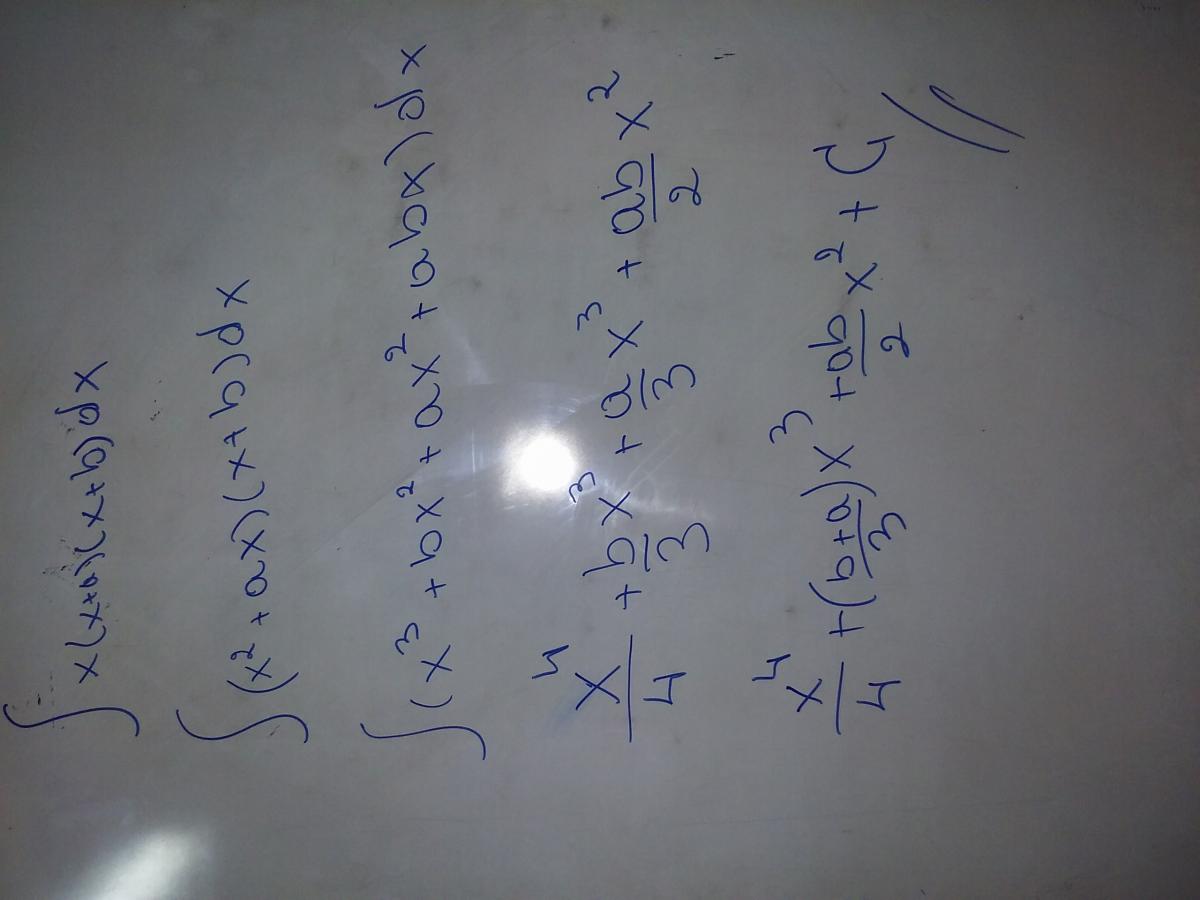 ∫ x(x+a)(x+b)dx
∫ (x² + ax)(x+b)dx
∫ (x³ + bx² + ax² + abx)dx
x⁴/4 + b/3 x³ + a/3 x³ + ab/2 x²
x⁴/4 + (b+a/3)x³ + ab/2 x² + C //